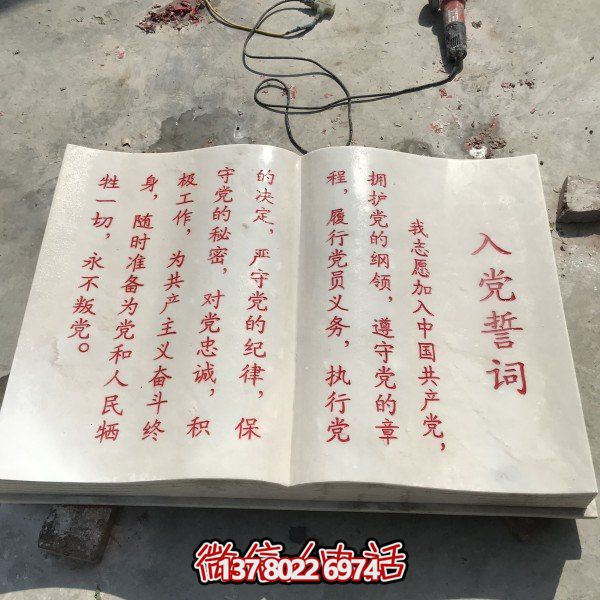 入党誓词
我志愿加入中国共产党，
拥护党的纲领，遵守党的章
程，履行党员义务，执行党
的决定，严守党的纪律，保
守党的秘密，对党忠诚，积
极工作，为共产主义奋斗终
身，随时准备为党和人民牺
牲一切，永不叛党。
微信/电话
137 8022 6974